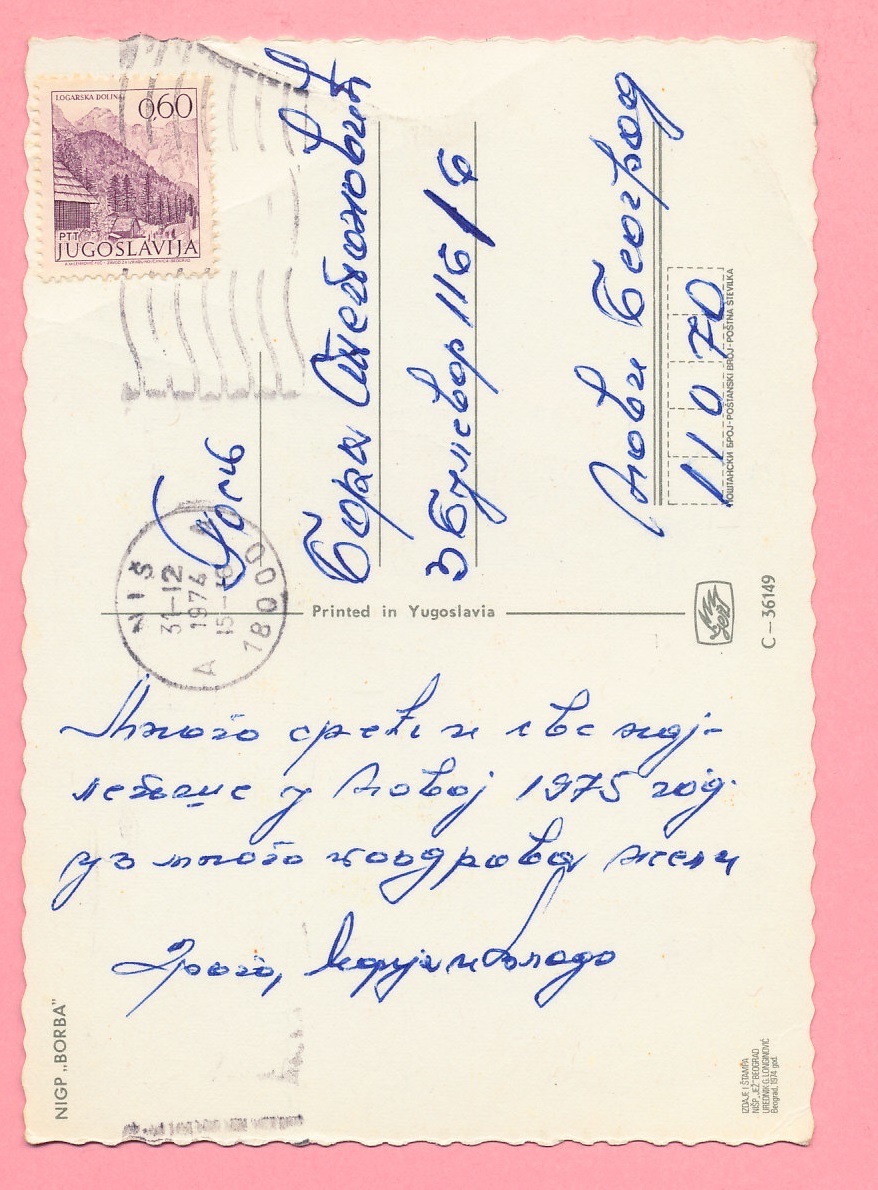 Много среће и све нај-
лепше у Новој 1975 год.
уз много поздрава жели
Драго, Марија и Влада
Бора Стевановић
3 булевар 116/6
Нови Београд
11070
LOGARSKA DOLINA
0,60
PTT
JUGOSLAVIJA
NIŠ
31-12
1974
15-
18000
A
Printed in Yugoslavia
ПОШТАНСКИ БРОЈ-POŠTANSKI BROJ-POŠTNA ŠTEVILKA
C—36149
NIGP „BORBA"
IZDAJE I ŠTAMPA
NIŠP „JEŽ" BEOGRAD
UREDNIK G. LONGINOVIĆ
Beograd, 1974 god.